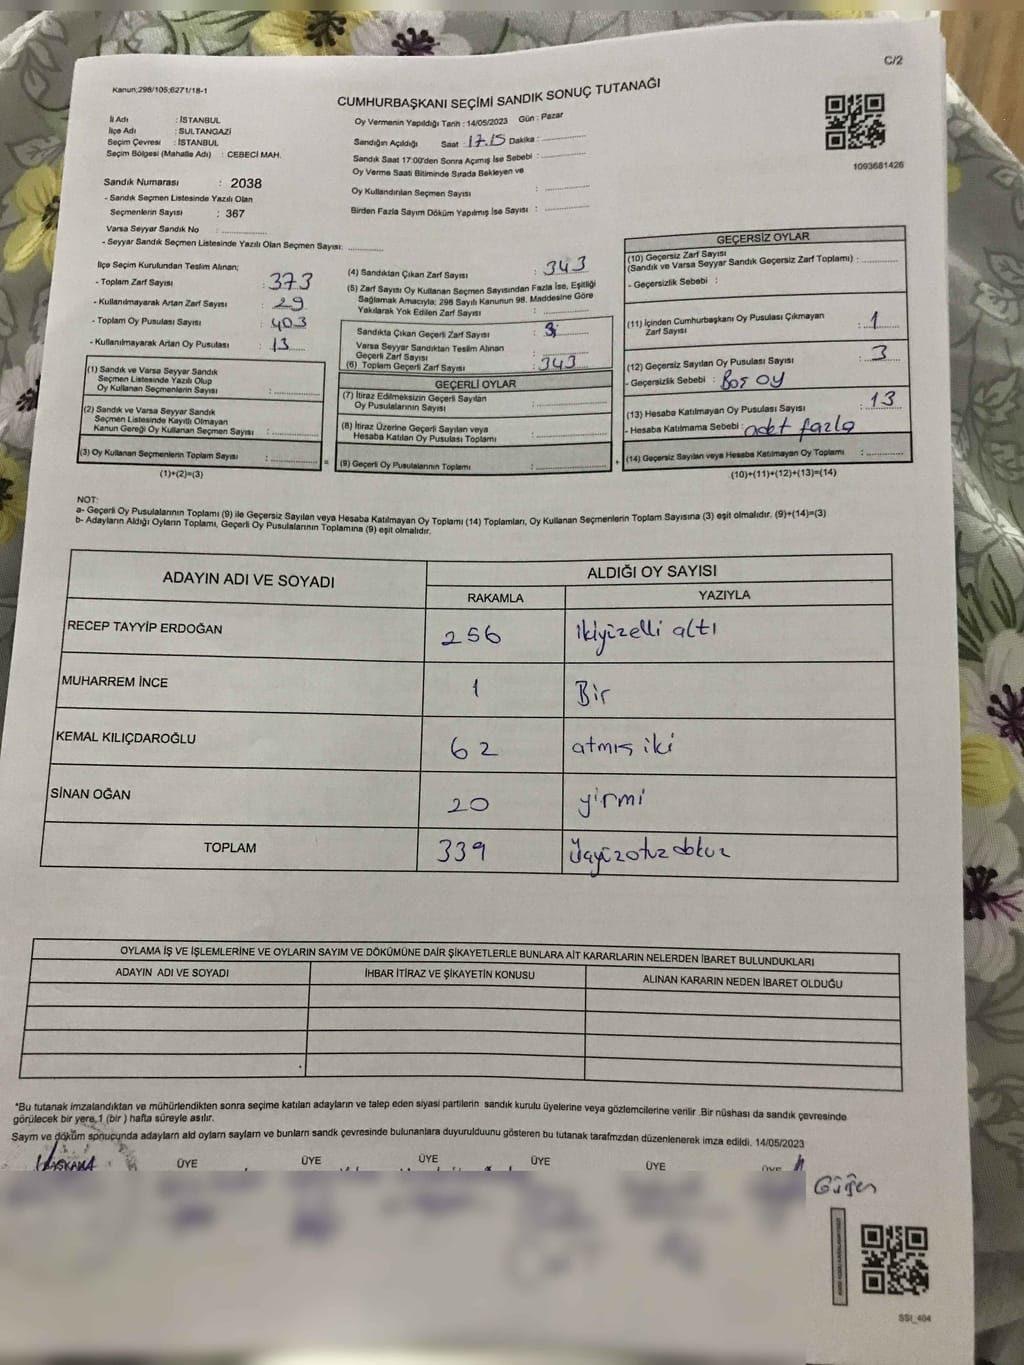 C/2
Kanun;298/105;6271/18-1
CUMHURBAŞKANI SEÇİMİ SANDIK SONUÇ TUTANAĞI
İl Adı : İSTANBUL
İlçe Adı : SULTANGAZİ
Seçim Çevresi : İSTANBUL
Seçim Bölgesi (Mahalle Adı) : CEBECİ MAH.
Sandık Numarası : 2038
- Sandık Seçmen Listesinde Yazılı Olan
Seçmenlerin Sayısı : 367
Varsa Seyyar Sandık No :
- Seyyar Sandık Seçmen Listesinde Yazılı Olan Seçmen Sayısı:
Oy Vermenin Yapıldığı Tarih : 14/05/2023 Gün : Pazar
Sandığın Açıldığı Saat : 17.15 Dakika :
Sandık Saat 17:00'den Sonra Açımış İse Sebebi :
Oy Verme Saati Bitiminde Sırada Bekleyen ve
Oy Kullandırılan Seçmen Sayısı :
Birden Fazla Sayım Döküm Yapılmış İse Sayısı :
1093681426
İlçe Seçim Kurulundan Teslim Alınan;
- Toplam Zarf Sayısı : 373
- Kullanılmayarak Artan Zarf Sayısı : 29
- Toplam Oy Pusulası Sayısı : 403
- Kullanılmayarak Artan Oy Pusulası : 13
(1) Sandık ve Varsa Seyyar Sandık
Seçmen Listesinde Yazılı Olup
Oy Kullanan Seçmenlerin Sayısı :
(2) Sandık ve Varsa Seyyar Sandık
Seçmen Listesinde Kayıtlı Olmayan
Kanun Gereği Oy Kullanan Seçmen Sayısı :
(3) Oy Kullanan Seçmenlerin Toplam Sayısı :
(1)+(2)=(3)
(4) Sandıktan Çıkan Zarf Sayısı : 343
(5) Zarf Sayısı Oy Kullanan Seçmen Sayısından Fazla İse, Eşitliği
Sağlamak Amacıyla; 298 Sayılı Kanunun 98. Maddesine Göre
Yakılarak Yok Edilen Zarf Sayısı :
Sandıkta Çıkan Geçerli Zarf Sayısı :
Varsa Seyyar Sandıktan Teslim Alınan
Geçerli Zarf Sayısı :
(6) Toplam Geçerli Zarf Sayısı : 343
GEÇERLİ OYLAR
(7) İtiraz Edilmeksizin Geçerli Sayılan
Oy Pusulalarının Sayısı :
(8) İtiraz Üzerine Geçerli Sayılan veya
Hesaba Katılan Oy Pusulası Toplamı :
(9) Geçerli Oy Pusulalarının Toplamı :
GEÇERSİZ OYLAR
(10) Geçersiz Zarf Sayısı
(Sandık ve Varsa Seyyar Sandık Geçersiz Zarf Toplamı) :
- Geçersizlik Sebebi :
(11) İçinden Cumhurbaşkanı Oy Pusulası Çıkmayan
Zarf Sayısı : 1
(12) Geçersiz Sayılan Oy Pusulası Sayısı : 3
- Geçersizlik Sebebi : Boş oy
(13) Hesaba Katılmayan Oy Pusulası Sayısı : 13
- Hesaba Katılmama Sebebi : adet fazla
(14) Geçersiz Sayılan veya Hesaba Katılmayan Oy Toplamı :
(10)+(11)+(12)+(13)=(14)
NOT:
a- Geçerli Oy Pusulalarının Toplamı (9) ile Geçersiz Sayılan veya Hesaba Katılmayan Oy Toplamı (14) Toplamları, Oy Kullanan Seçmenlerin Toplam Sayısına (3) eşit olmalıdır. (9)+(14)=(3)
b- Adayların Aldığı Oyların Toplamı, Geçerli Oy Pusulalarının Toplamına (9) eşit olmalıdır.
ADAYIN ADI VE SOYADI ALDIĞI OY SAYISI
RAKAMLA YAZIYLA
RECEP TAYYİP ERDOĞAN 256 ikiyüzelli altı
MUHARREM İNCE 1 Bir
KEMAL KILIÇDAROĞLU 62 atmış iki
SİNAN OĞAN 20 yirmi
TOPLAM 339 üçyüzotuz dokuz
OYLAMA İŞ VE İŞLEMLERİNE VE OYLARIN SAYIM VE DÖKÜMÜNE DAİR ŞİKAYETLERLE BUNLARA AİT KARARLARIN NELERDEN İBARET BULUNDUKLARI
ADAYIN ADI VE SOYADI İHBAR İTİRAZ VE ŞİKAYETİN KONUSU ALINAN KARARIN NEDEN İBARET OLDUĞU
*Bu tutanak imzalandıktan ve mühürlendikten sonra seçime katılan adayların ve talep eden siyasi partilerin sandık kurulu üyelerine veya gözlemcilerine verilir .Bir nüshası da sandık çevresinde
görülecek bir yere,1 (bir ) hafta süreyle asılır.
Sayım ve döküm sonucunda adayların ald oyların sayları ve bunların sandk çevresinde bulunanlara duyurulduunu gösteren bu tutanak tarafmzdan düzenlenerek imza edildi. 14/05/2023
BAŞKAN ÜYE ÜYE ÜYE ÜYE ÜYE ÜYE
SSI_404